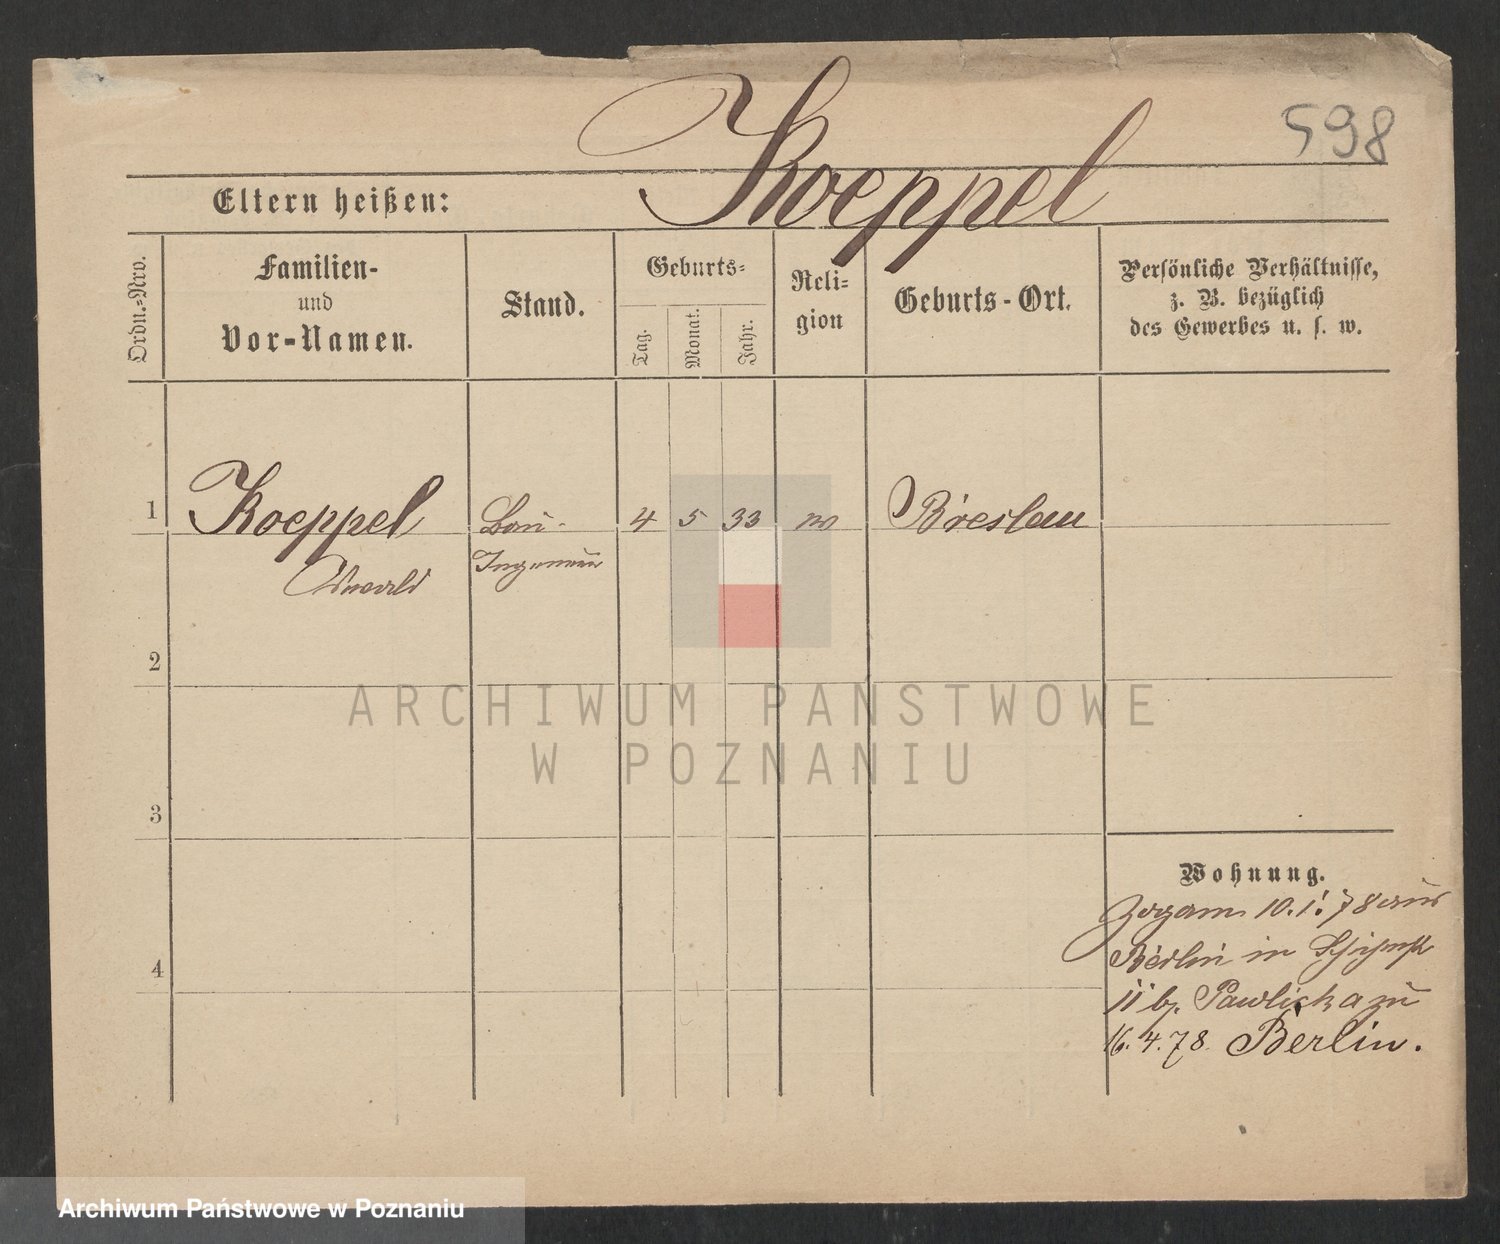 Koeppel
598
Eltern heißen:
Ordn.-Nro.
Familien-
und
Vor-Namen.
Stand.
Geburts-
Tag.
Monat.
Jahr.
Reli-
gion
Geburts-Ort.
Persönliche Verhältnisse,
z. B. bezüglich
des Gewerbes u. s. w.
1
Koeppel
Oswald
Bau-
Ingenieur
4
5
33
Breslau
2
3
4
Wohnung.
10.1.78 aus
Berlin in
11 b. Pawlicka
16.4.78. Berlin.
ARCHIWUM PAŃSTWOWE
W POZNANIU
Archiwum Państwowe w Poznaniu